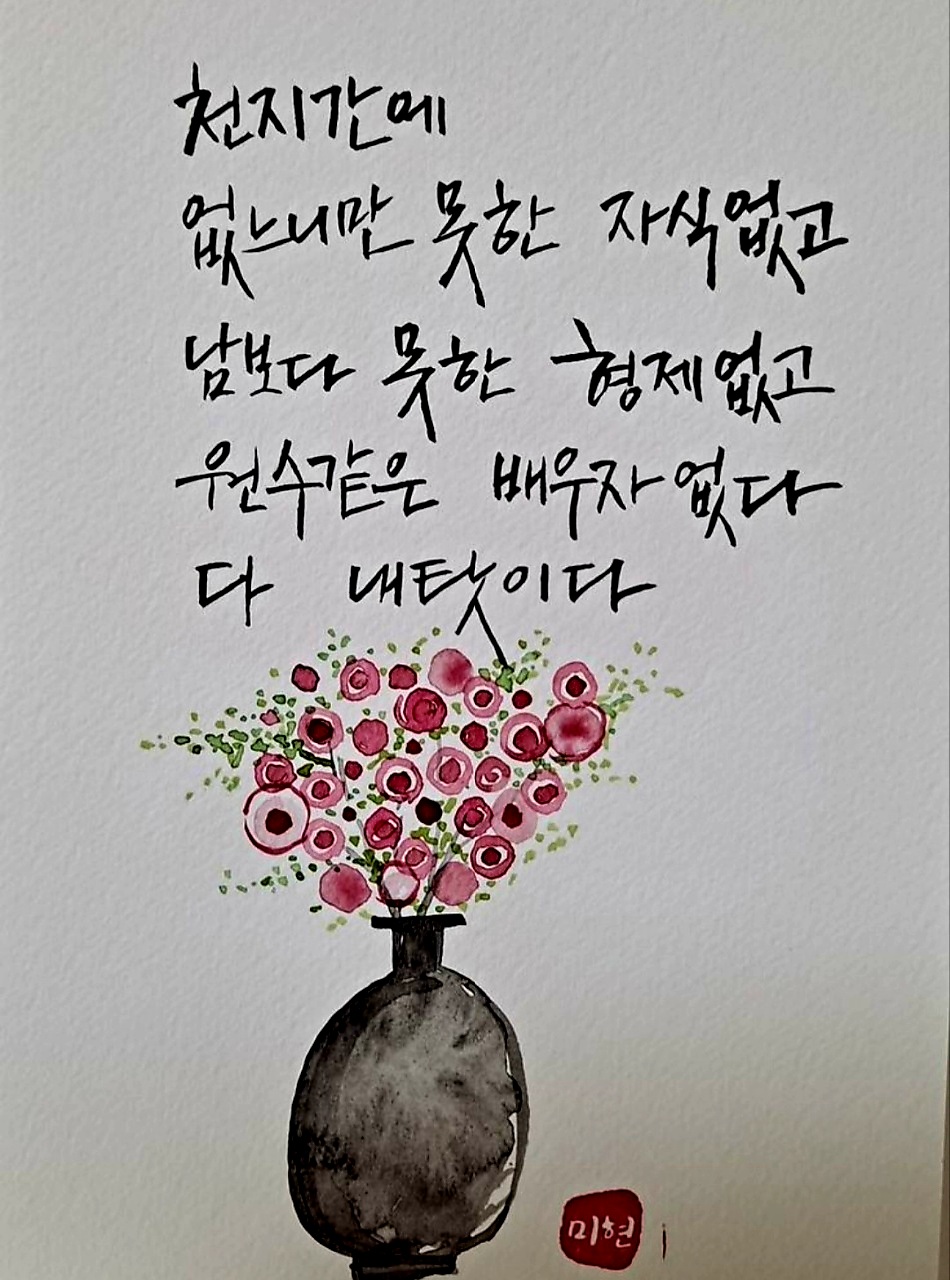 천지간에
없느니만 못한 자식없고
남보다 못한 형제없고
원수같은 배우자 없다
다 내탓이다
미현